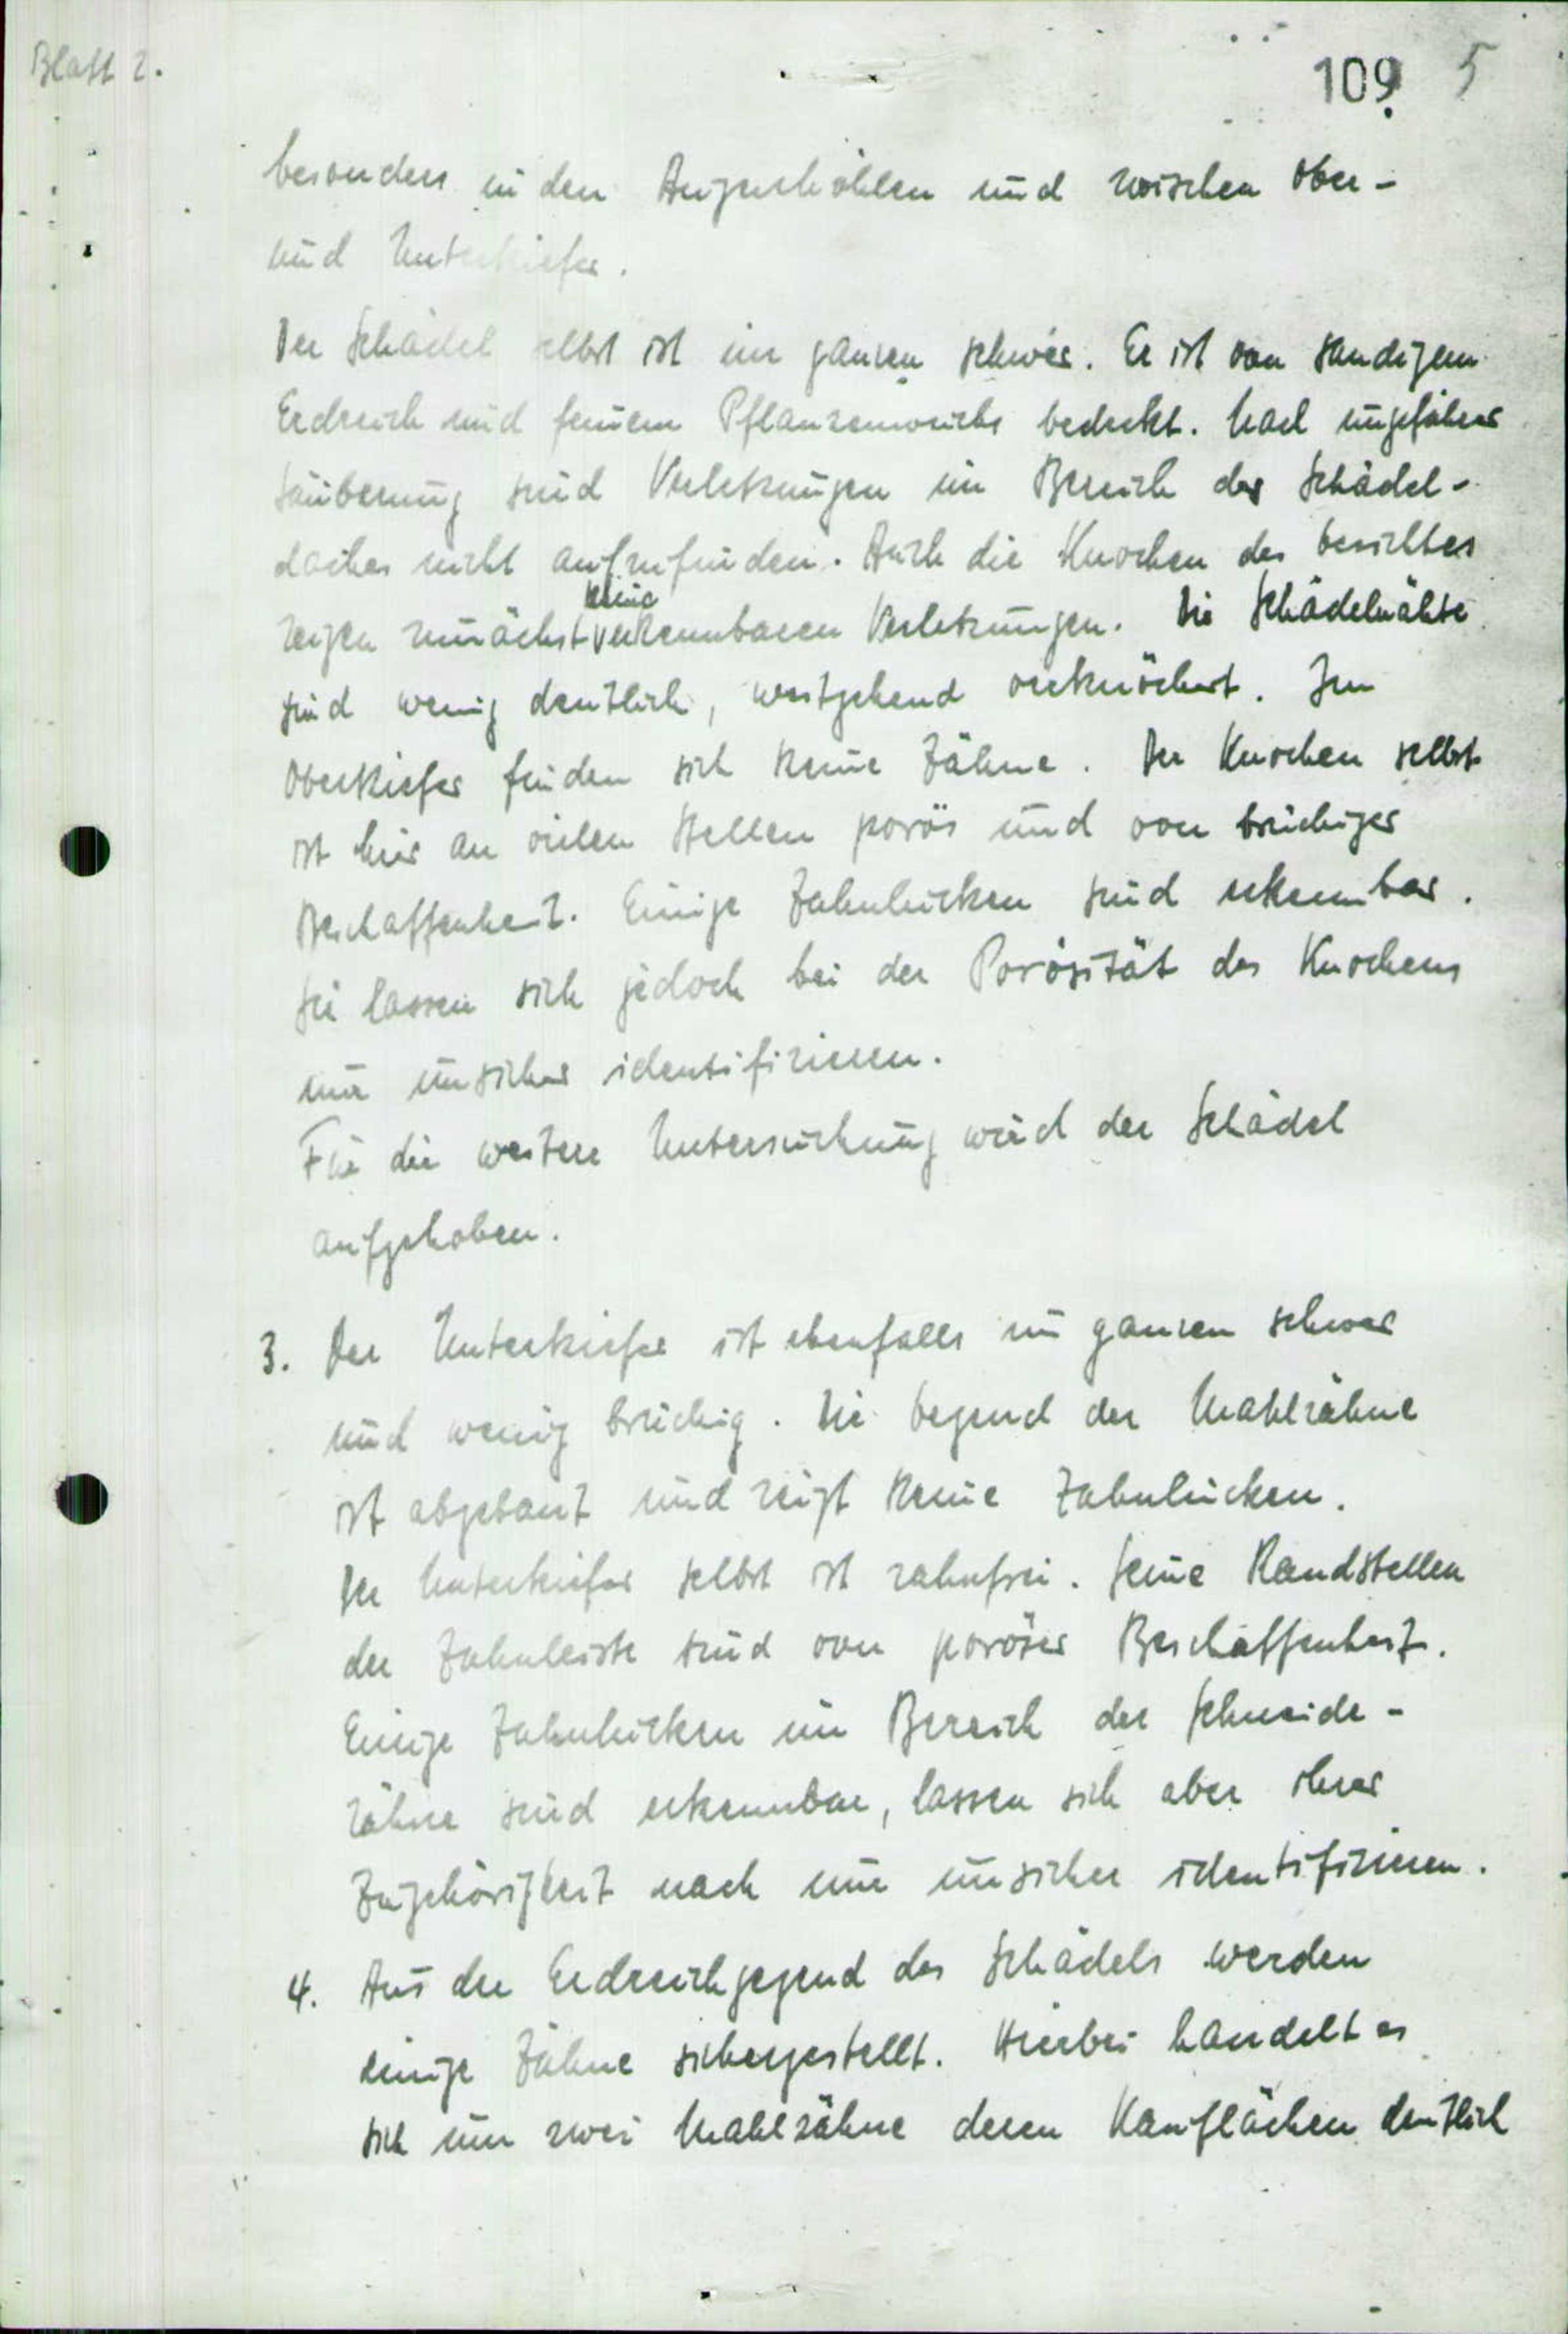 Blatt 2.
109 5
besonders in den Augenhöhlen und zwischen Ober-
und Unterkiefer.
Der Schädel selbst ist im ganzen schwer. Er ist von sandigem
Erdreich und feinem Pflanzenwuchs bedeckt. Nach ungefährer
Säuberung sind Verletzungen im Bereich des Schädel-
daches nicht aufzufinden. Auch die Knochen des Gesichtes
keine
zeigen zunächst erkennbaren Verletzungen. Die Schädelnähte
sind wenig deutlich, weitgehend verknöchert. Im
Oberkiefer finden sich keine Zähne. Der Knochen selbst
ist hier an vielen Stellen porös und von brüchiger
Beschaffenheit. Einige Zahnlücken sind erkennbar.
Sie lassen sich jedoch bei der Porösität des Knochens
nur unsicher identifizieren.
Für die weitere Untersuchung wird der Schädel
aufgehoben.
3. Der Unterkiefer ist ebenfalls im ganzen schwer
und wenig brüchig. Die Gegend der Mahlzähne
ist abgebaut und zeigt keine Zahnlücken.
Der Unterkiefer selbst ist zahnfrei. Seine Randstellen
der Zahnleiste sind von poröser Beschaffenheit.
Einige Zahnlücken im Bereich der Schneide-
zähne sind erkennbar, lassen sich aber ihrer
Zugehörigkeit nach nur unsicher identifizieren.
4. Aus der Erdreichgegend des Schädels werden
einige Zähne sichergestellt. Hierbei handelt es
sich um zwei Mahlzähne deren Kauflächen deutlich